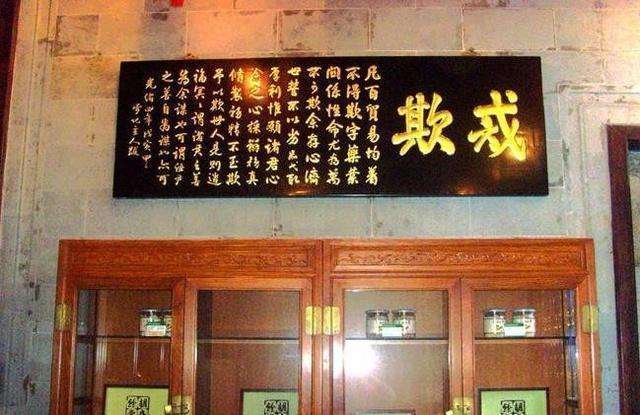 戒欺
凡百貿易均着
不得欺字藥業
關係性命尤為萬
不可欺余存心濟
世誓不以劣品弋取
厚利惟願諸君心
余之心採辦務真
修製務精不至欺
予以欺世人是則造
福冥冥謂諸君之善
為余謀也可謂諸君
之善自為謀亦可
光緒四年戊寅
雪記主人跋